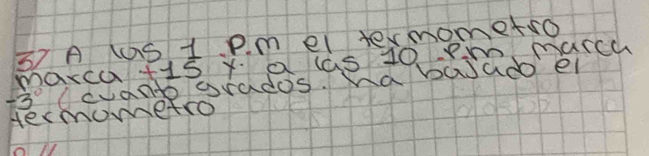 3) A las 1 P.m el termometro
marca +15 y. a las 10 P.m marca
-3° ( cuanto grados. ha bajado el
termometro